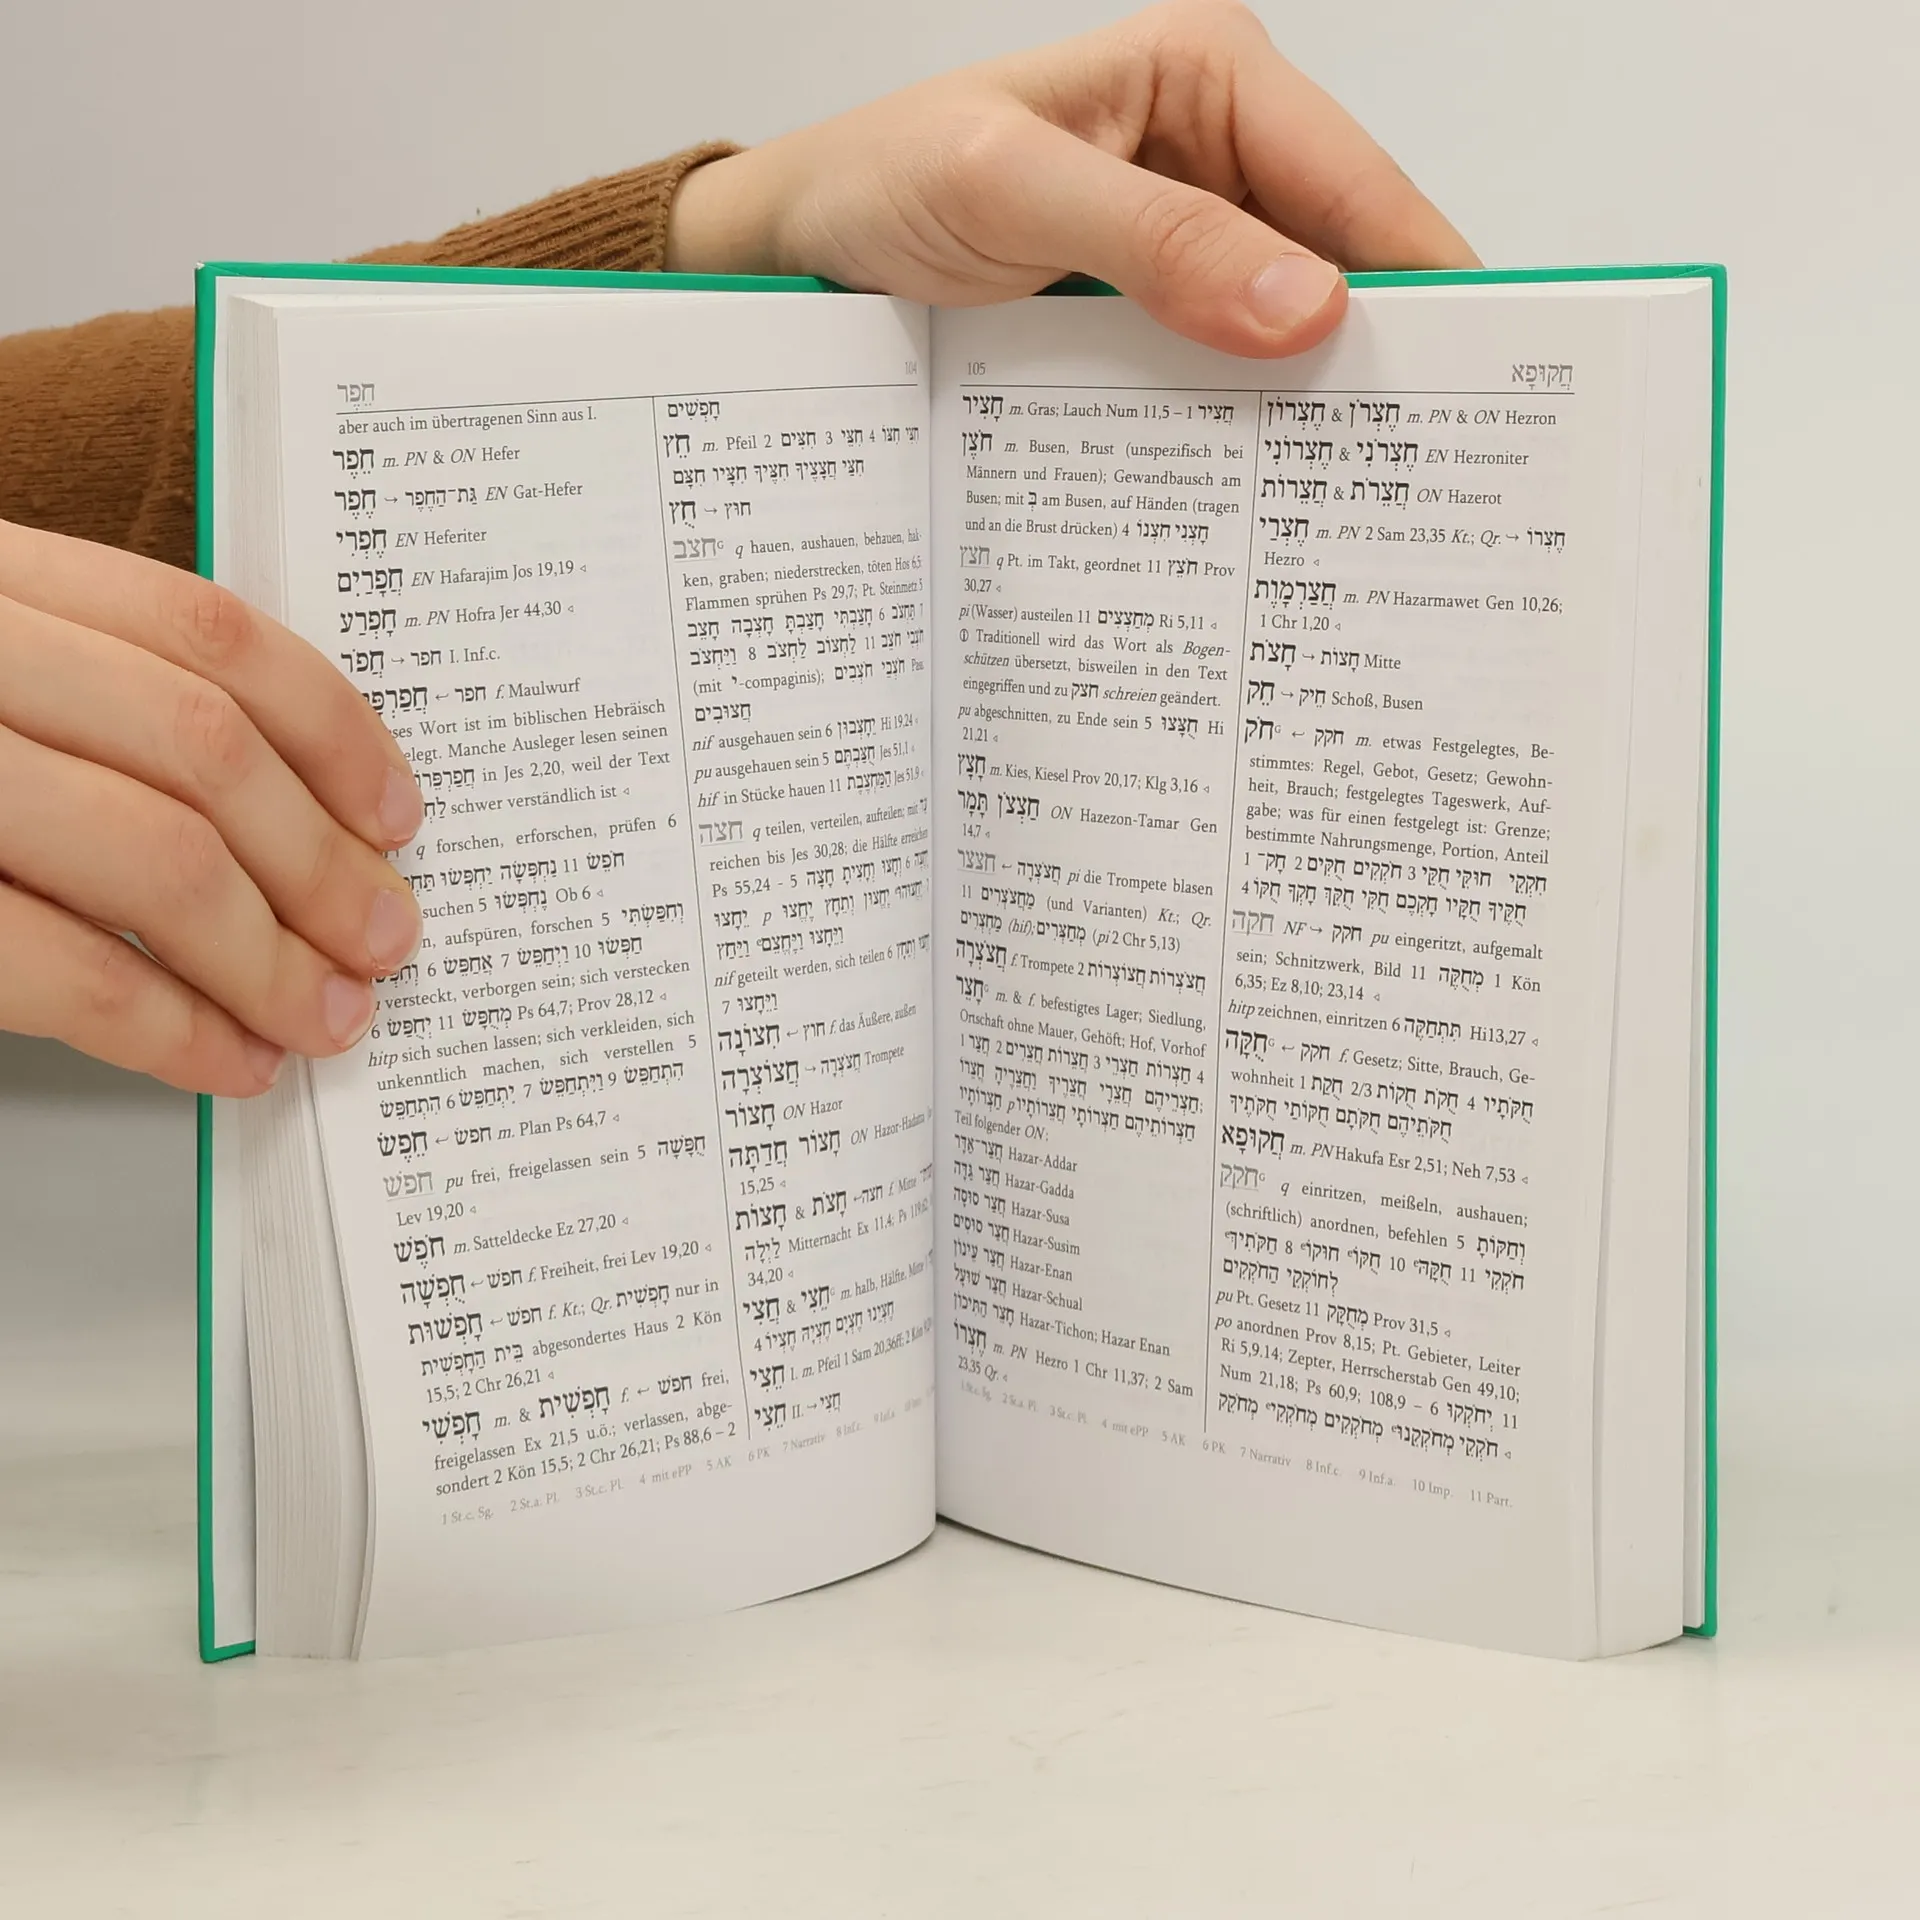 חֵפֶר
104
aber auch im übertragenen Sinn aus I.
חֵפֶר m. PN & ON Hefer
חֵפֶר → גַּת־הַחֵפֶר EN Gat-Hefer
חֶפְרִי EN Heferiter
חֲפָרַיִם EN Hafarajim Jos 19,19 ◃
חָפְרַע m. PN Hofra Jer 44,30 ◃
חֲפֹר → חפר I. Inf.c.
← חפר f. Maulwurf
Wort ist im biblischen Hebräisch
Manche Ausleger lesen seinen
in Jes 2,20, weil der Text
schwer verständlich ist ◃
q forschen, erforschen, prüfen 6
נַחְפְּשָׂה יַחְפְּשׂוּ 11 חֹפֵשׂ
suchen 5 נֶחְפְּשׂוּ Ob 6 ◃
aufspüren, forschen 5 וְחִפַּשְׂתִּי
6 אֲחַפֵּשׂ 7 וַיְחַפֵּשׂ 10 חַפְּשׂוּ
versteckt, verborgen sein; sich verstecken
6 יְחֻפַּשׂ 11 מְחֻפָּשׂ Ps 64,7; Prov 28,12 ◃
hitp sich suchen lassen; sich verkleiden, sich
unkenntlich machen, sich verstellen 5
הִתְחַפֵּשׂ 6 יִתְחַפֵּשׂ 7 וַיִּתְחַפֵּשׂ 9 הִתְחַפֵּשׂ
חֵפֶשׂ ← חפשׂ m. Plan Ps 64,7 ◃
חפשׁ pu frei, freigelassen sein 5 חֻפָּשָׁה
Lev 19,20 ◃
חֹפֶשׁ m. Satteldecke Ez 27,20 ◃
חֻפְשָׁה ← חפשׁ f. Freiheit, frei Lev 19,20 ◃
חָפְשׁוּת ← חפשׁ f. Kt.; Qr. חָפְשִׁית nur in
בֵּית הַחָפְשִׁית abgesondertes Haus 2 Kön
15,5; 2 Chr 26,21 ◃
חָפְשִׁי m. & חָפְשִׁית f. ← חפשׁ frei,
freigelassen Ex 21,5 u.ö.; verlassen, abge-
sondert 2 Kön 15,5; 2 Chr 26,21; Ps 88,6 – 2
חָפְשִׁים
חֵץ m. Pfeil 2 חִצִּים 3 חִצֵּי 4 חִצּוֹ חִצִּי
חִצַּי חֲצָצֶיךָ חִצֶּיךָ חִצָּיו חִצָּם
חֻץ → חוּץ
חצבᴳ q hauen, aushauen, behauen, hak-
ken, graben; niederstrecken, töten Hos 6,5;
Flammen sprühen Ps 29,7; Pt. Steinmetz 5
חָצֵב חָצְבָה חָצַבְתָּ חָצַבְתִּי 6 תַּחְצֹב 7
וַיַּחְצֹב 8 לַחְצֹב לַחְצוֹב 11 חֹצֵב חֹצְבֵי
(mit י-compaginis); חֹצְבִים חֹצְבֵי Pass.
חֲצוּבִים
nif ausgehauen sein 6 יֵחָצְבוּן Hi 19,24 ◃
pu ausgehauen sein 5 חֻצַּבְתֶּם Jes 51,1 ◃
hif in Stücke hauen 11 הַמַּחְצֶבֶת Jes 51,9 ◃
חצה q teilen, verteilen, aufteilen; mit עַד
reichen bis Jes 30,28; die Hälfte erreichen
Ps 55,24 – 5 חָצָה וְחָצִיתָ וְחָצוּ 6
nif geteilt werden, sich teilen 6
7 וַיֵּחָצוּ
חִצוֹנָה ← חוץ f. das Äußere, außen
חֲצוֹצְרָה → חֲצֹצְרָה Trompete
חָצוֹר ON Hazor
חָצוֹר חֲדַתָּה ON Hazor-Hadatta
15,25 ◃
חָצוֹת & חֲצֹת ← חצה f. Mitte
לַיְלָה Mitternacht Ex 11,4; Ps 119,62
34,20 ◃
חֲצִי & חֵצִיᴳ m. halb, Hälfte, Mitte 1
4 חֶצְיוֹ חֶצְיָהּ חֶצְיָם חֶצְיֵנוּ
חֵצִי I. m. Pfeil 1 Sam 20,36ff; 2 Kön
חֵצִי II. → חֲצִי
1 St.c. Sg. 2 St.a. Pl. 3 St.c. Pl. 4 mit ePP 5 AK 6 PK 7 Narrativ 8 Inf.c. 9 Inf.a.
105
חֲקוּפָא
חָצִיר m. Gras; Lauch Num 11,5 – 1 חֲצִיר
חֹצֶן m. Busen, Brust (unspezifisch bei
Männern und Frauen); Gewandbausch am
Busen; mit בְּ am Busen, auf Händen (tragen
und an die Brust drücken) 4 חָצְנִי חִצְנוֹ
חצץ q Pt. im Takt, geordnet 11 חֹצֵץ Prov
30,27 ◃
pi (Wasser) austeilen 11 מְחַצְצִים Ri 5,11 ◃
① Traditionell wird das Wort als Bogen-
schützen übersetzt, bisweilen in den Text
eingegriffen und zu חצק schreien geändert.
pu abgeschnitten, zu Ende sein 5 חֻצָּצוּ Hi
21,21 ◃
חָצָץ m. Kies, Kiesel Prov 20,17; Klg 3,16 ◃
חַצְצֹן תָּמָר ON Hazezon-Tamar Gen
14,7 ◃
חצצר ← חֲצֹצְרָה pi die Trompete blasen
11 מַחֲצֹצְרִים (und Varianten) Kt.; Qr.
מַחְצְרִים (hif); מְחַצְּרִים (pi 2 Chr 5,13)
חֲצֹצְרָה f. Trompete 2 חֲצוֹצְרוֹת חֲצֹצְרוֹת
חָצֵרᴳ m. & f. befestigtes Lager; Siedlung,
Ortschaft ohne Mauer, Gehöft; Hof, Vorhof
1 חֲצַר 2 חֲצֵרִים חֲצֵרוֹת 3 חַצְרֵי חַצְרוֹת 4
חֲצֵרוֹ וַחֲצֵרֶיהָ חֲצֵרֶיךָ חֲצֵרַי חַצְרֵיהֶם;
חַצְרוֹתָיו p חַצְרוֹתָיו חַצְרוֹתַי חַצְרוֹתֵיהֶם
Teil folgender ON:
חֲצַר־אַדָּר Hazar-Addar
חֲצַר גַּדָּה Hazar-Gadda
חֲצַר סוּסָה Hazar-Susa
חֲצַר סוּסִים Hazar-Susim
חֲצַר עֵינוֹן Hazar-Enan
חֲצַר שׁוּעָל Hazar-Schual
חָצֵר הַתִּיכוֹן Hazar-Tichon; Hazar Enan
חֶצְרוֹ m. PN Hezro 1 Chr 11,37; 2 Sam
23,35 Qr. ◃
חֶצְרוֹן & חֶצְרֹן m. PN & ON Hezron
חֶצְרוֹנִי & חֶצְרֹנִי EN Hezroniter
חֲצֵרוֹת & חֲצֵרֹת ON Hazerot
חֶצְרַי m. PN 2 Sam 23,35 Kt.; Qr. → חֶצְרוֹ
Hezro ◃
חֲצַרְמָוֶת m. PN Hazarmawet Gen 10,26;
1 Chr 1,20 ◃
חֲצֹת → חָצוֹת Mitte
חֵק → חֵיק Schoß, Busen
חֹקᴳ ← חקק m. etwas Festgelegtes, Be-
stimmtes: Regel, Gebot, Gesetz; Gewohn-
heit, Brauch; festgelegtes Tageswerk, Auf-
gabe; was für einen festgelegt ist: Grenze;
bestimmte Nahrungsmenge, Portion, Anteil
1 חָק־ 2 חֻקִּים חֹקְקִים 3 חֻקֵּי חוּקֵּי חִקְקֵי
4 חֻקּוֹ חָקְךָ חֻקֶּךָ חֻקִּי חָקְכֶם חֻקָּיו חֻקֶּיךָ
חקה NF → חקק pu eingeritzt, aufgemalt
sein; Schnitzwerk, Bild 11 מְחֻקֶּה 1 Kön
6,35; Ez 8,10; 23,14 ◃
hitp zeichnen, einritzen 6 תִּתְחַקֶּה Hi13,27 ◃
חֻקָּהᴳ ← חקק f. Gesetz; Sitte, Brauch, Ge-
wohnheit 1 חֻקַּת 2/3 חֻקּוֹת חֻקֹּת 4 חֻקֹּתָיו
חֻקֹּתֶיךָ חֻקּוֹתַי חֻקֹּתָם חֻקֹּתֵיהֶם
חֲקוּפָא m. PN Hakufa Esr 2,51; Neh 7,53 ◃
חקקᴳ q einritzen, meißeln, aushauen;
(schriftlich) anordnen, befehlen 5 וְחַקּוֹתָ
חַקֹּתִיךְ 8 חוּקוֹ חֻקּוֹ 10 חֻקָּהּ 11 חֹקְקִי
לְחוֹקְקֵי הַחֹקְקִים
pu Pt. Gesetz 11 מְחֻקָּק Prov 31,5 ◃
po anordnen Prov 8,15; Pt. Gebieter, Leiter
Ri 5,9.14; Zepter, Herrscherstab Gen 49,10;
Num 21,18; Ps 60,9; 108,9 – 6 יְחֹקְקוּ 11
מְחֹקֵק מְחֹקְקִי מְחֹקְקִים מְחֹקְקֵנוּ חֹקְקֵי ◃
1 St.c. Sg. 2 St.a. Pl. 3 St.c. Pl. 4 mit ePP 5 AK 6 PK 7 Narrativ 8 Inf.c. 9 Inf.a. 10 Imp. 11 Part.